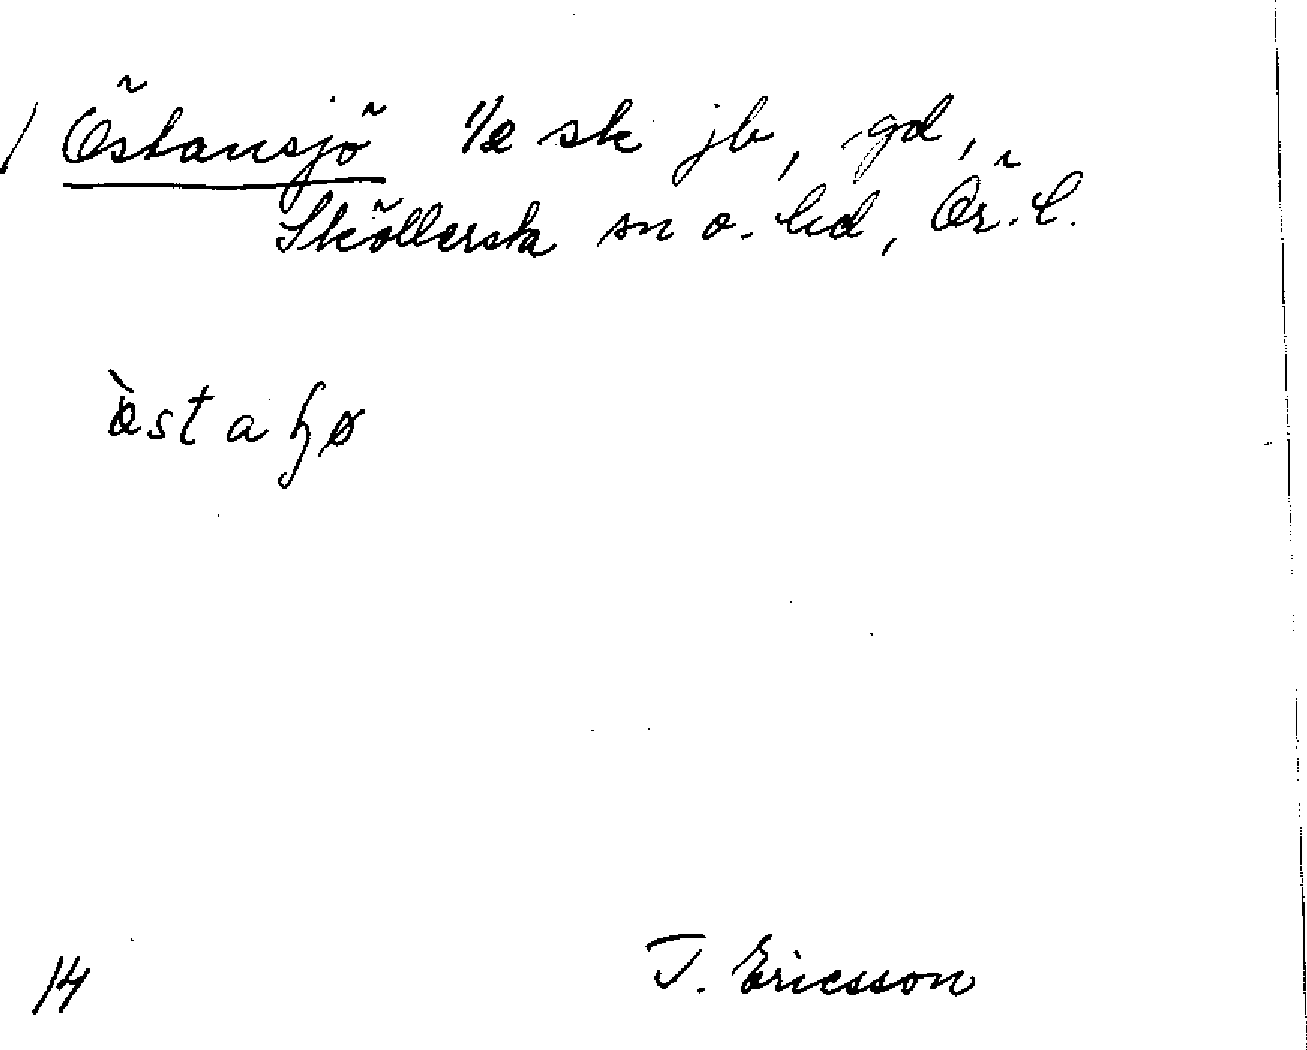 / Östansjö 1/2 sk jb, gd,
Sköllersta sn o. hd, Ör. l.
östaɧø
14
T. Ericsson